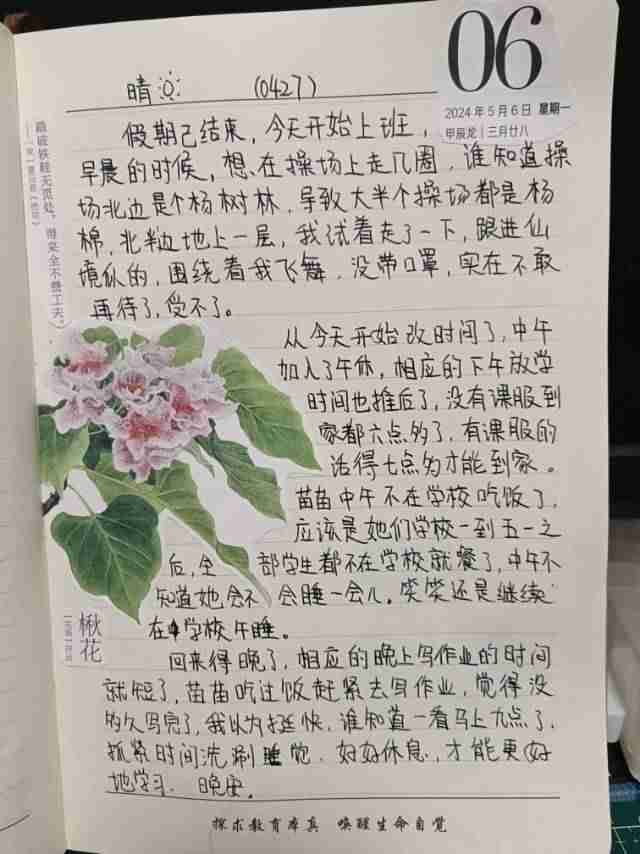 06
2024年5月6日 星期一
甲辰龙|三月廿八
晴 (0427)
踏破铁鞋无觅处，得来全不费工夫。
假期已结束，今天开始上班，
早晨的时候，想在操场上走几圈，谁知道操
场北边是个杨树林，导致大半个操场都是杨
棉，北半边地上一层，我试着走了一下，跟进仙
境似的，围绕着我飞舞，没带口罩，实在不敢
再待了，受不了。
从今天开始改时间了，中午
加入了午休，相应的下午放学
时间也推后了，没有课服到
家都六点多了，有课服的
话得七点多才能到家。
苗苗中午不在学校吃饭了，
应该是她们学校一到五一之
后，全部学生都不在学校就餐了，中午不
知道她会不会睡一会儿。笑笑还是继续
在学校午睡。
楸花
回来得晚了，相应的晚上写作业的时间
就短了，苗苗吃过饭赶紧去写作业，觉得没
多久写完了，我以为挺快，谁知道一看马上九点了，
抓紧时间洗涮睡觉，好好休息，才能更好
地学习。晚安。
探求教育本真 唤醒生命自觉